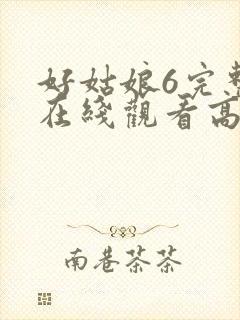 好姑娘6完整
在线觀看高
南巷茶茶